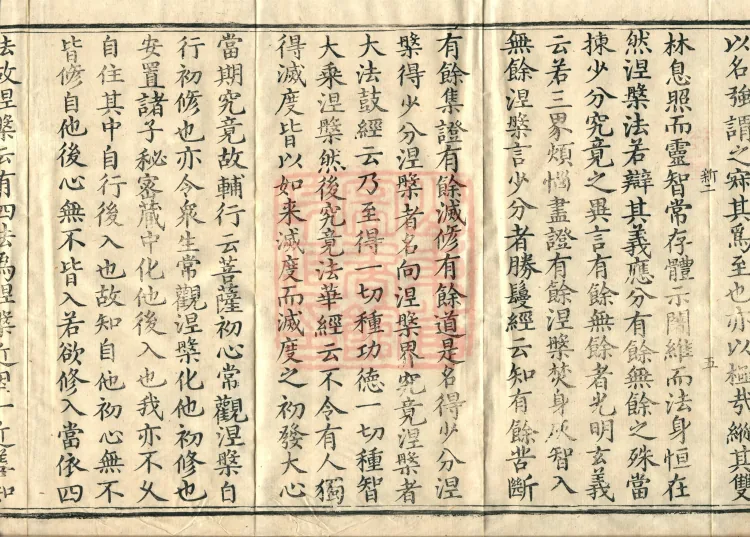 以名強謂之寂其爲至也亦以極哉縱其雙
新二
五
林息照而靈智常存體示闍維而法身恒在
然涅槃法若辯其義應分有餘無餘之殊當
揀少分究竟之異言有餘無餘者光明玄義
云若三界煩惱盡證有餘涅槃焚身灰智入
無餘涅槃言少分者勝鬘經云知有餘苦斷
有餘集證有餘滅修有餘道是名得少分涅
槃得少分涅槃者名向涅槃界究竟涅槃者
大法鼓經云乃至得一切種功德一切種智
大乘涅槃然後究竟法華經云不令有人獨
得滅度皆以如来滅度而滅度之初發大心
當期究竟故輔行云菩薩初心常觀涅槃自
行初修也亦令衆生常觀涅槃化他初修也
安置諸子秘密藏中化他後入也我亦不乆
自住其中自行後入也故知自他初心無不
皆修自他後心無不皆入若欲修入當依四
法故涅槃云有四法爲涅槃近因一近善知